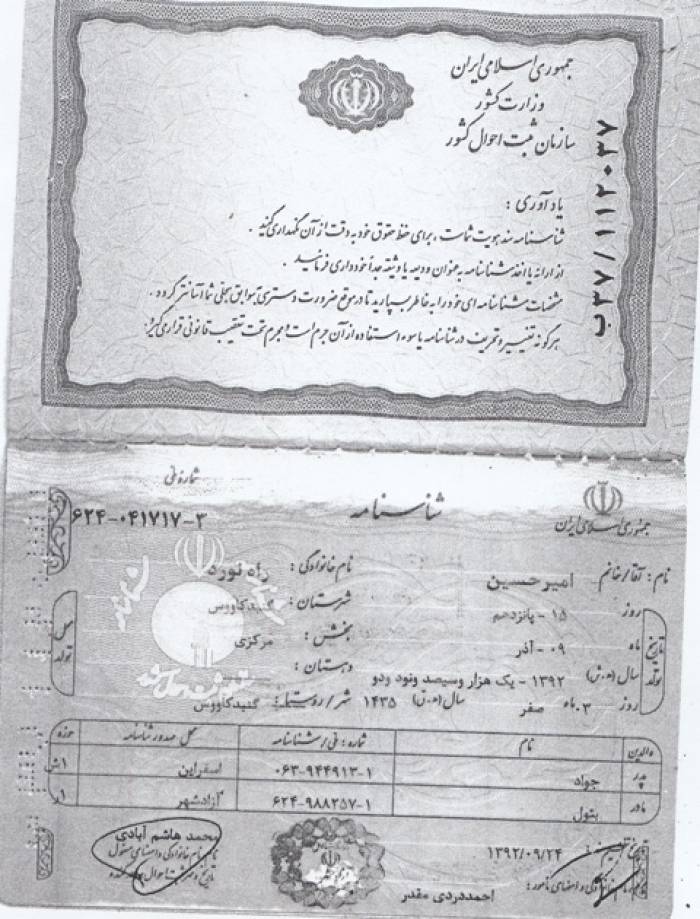 جمهوری اسلامی ایران
وزارت کشور
سازمان ثبت احوال کشور
ب۳۷/۱۱۲۰۳۷
یادآوری :
شناسنامه سند هویت شماست ، برای حفظ حقوق خود به دقت از آن نگهداری کنید .
از ارائه یا اخذ شناسنامه به عنوان ودیعه یا وثیقه جداً خودداری فرمائید .
مشخصات شناسنامه ای خود را به خاطر بسپارید تا در موقع ضرورت دسترسی به سوابق سجلی شما آسانتر گردد .
هرگونه تغییر و تحریف در شناسنامه یا سوء استفاده از آن جرم است و مجرم تحت تعقیب قانونی قرار می گیرد .
جمهوری اسلامی ایران
شناسنامه
شماره ملی
۶۲۴-۰۴۱۷۱۷-۳
نام : آقا/خانم امیرحسین
نام خانوادگی : راه نورد
تاریخ تولد
روز ۱۵ - پانزدهم
ماه ۰۹ - آذر
سال (ه.ش) ۱۳۹۲ - یک هزار وسیصد ونود ودو
روز ۳ ماه صفر سال (ه.ق) ۱۴۳۵
محل تولد
شهرستان : گنبدکاووس
بخش : مرکزی
دهستان :
شهر/روستا : گنبدکاووس
والدین نام شماره : ملی/شناسنامه محل صدور شناسنامه حوزه
پدر جواد ۰۶۳-۹۴۴۹۱۳-۱ اسفراین
مادر بتول ۶۲۴-۹۸۸۲۵۷-۱ آزادشهر
۱۳۹۲/۰۹/۲۴
احمددردی مقدر
محمد هاشم آبادی